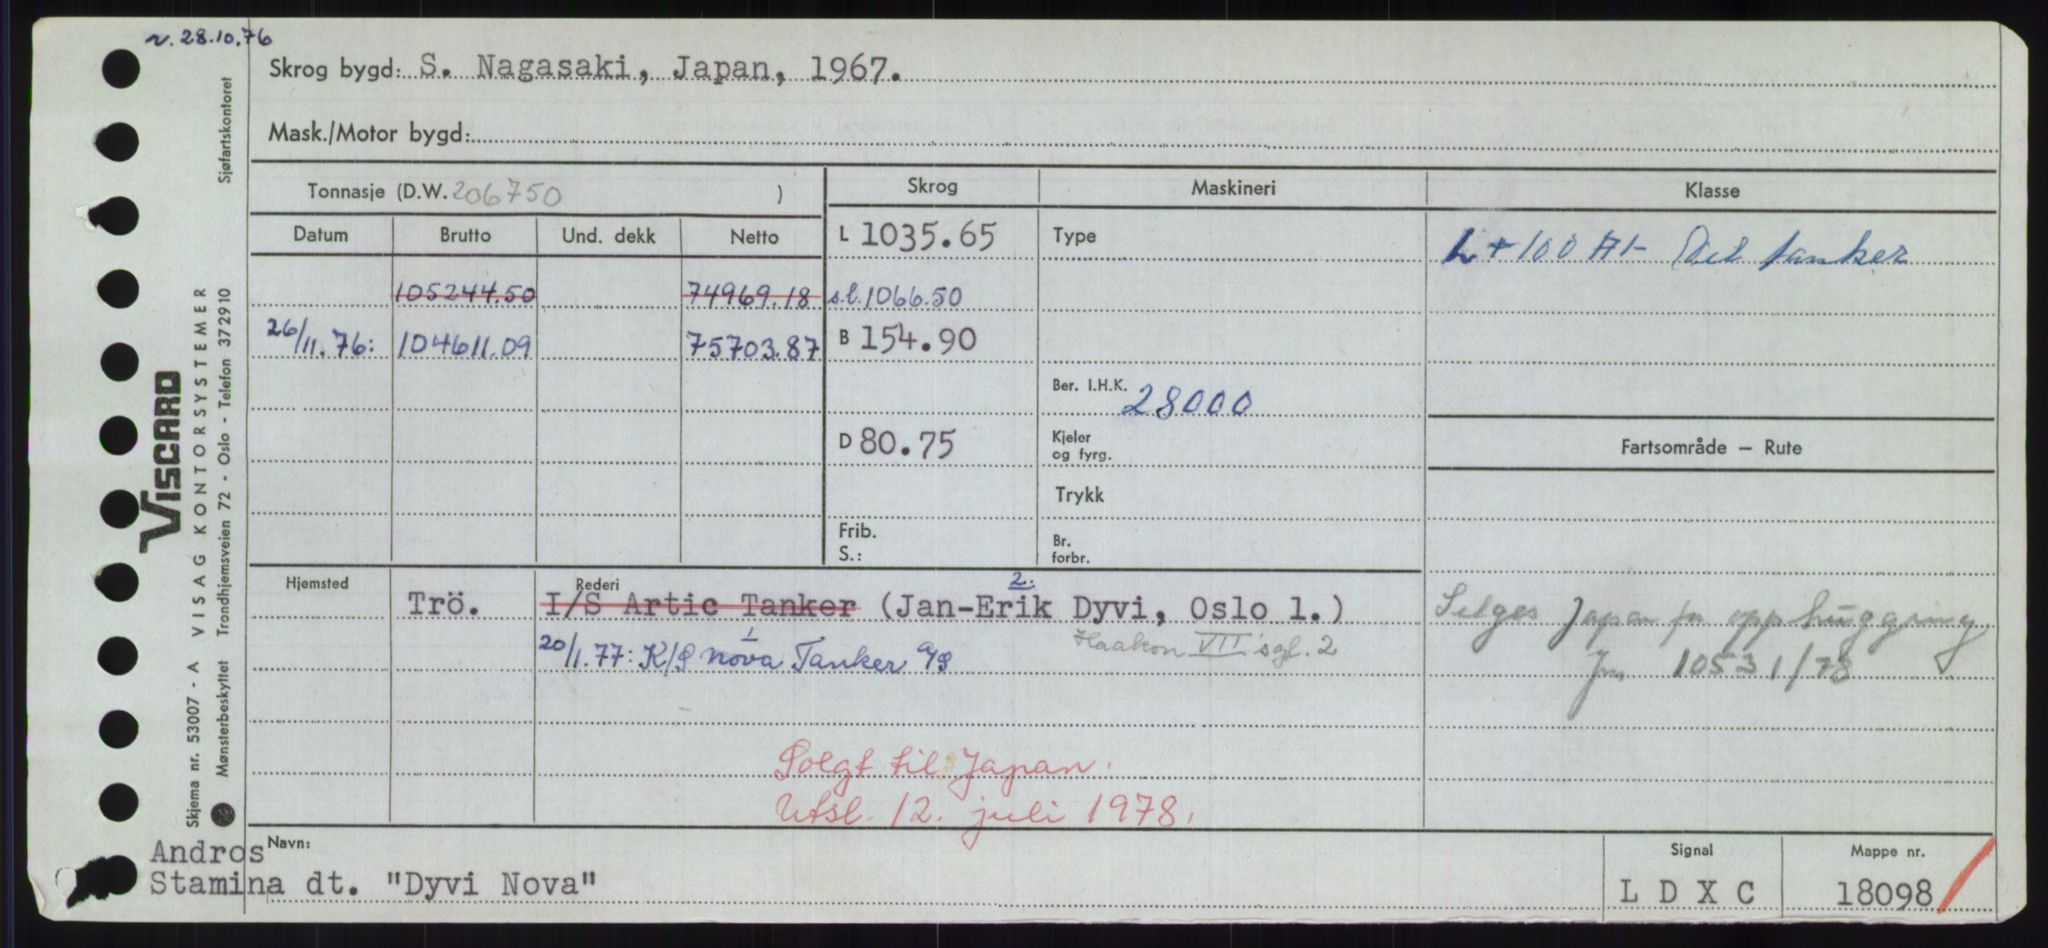 v. 28.10.76
Skrog bygd: S. Nagasaki, Japan, 1967.
Mask./Motor bygd:
Tonnasje (D.W. 206750 )
Skrog
Maskineri
Klasse
Datum Brutto Und. dekk Netto
L 1035.65
Type
L + 100 A1 - Oil tanker
105244.50 74969.18 s.l. 1066.50
26/11.76: 104611.09 75703.87 B 154.90
Ber. I.H.K. 28000
D 80.75
Kjeler
og fyrg.
Fartsområde – Rute
Trykk
Frib.
S.:
Br.
forbr.
Hjemsted
Rederi
2.
Trö. I/S Artic Tanker (Jan-Erik Dyvi, Oslo 1.)
1 Haakon VII's gt. 2
20/1.77: K/S Nova Tanker A/S
Selges Japan for opphugging
Jnr 10531/78
Solgt til Japan.
Utsl. 12. juli 1978.
Andros
Navn:
Stamina dt. "Dyvi Nova"
Signal
L D X C
Mappe nr.
18098
VISCARD
Skjema nr. 53007 - A VISAG KONTORSYSTEMER
Mønsterbeskyttet Trondhjemsveien 72 - Oslo - Telefon 37 29 10 Sjøfartskontoret